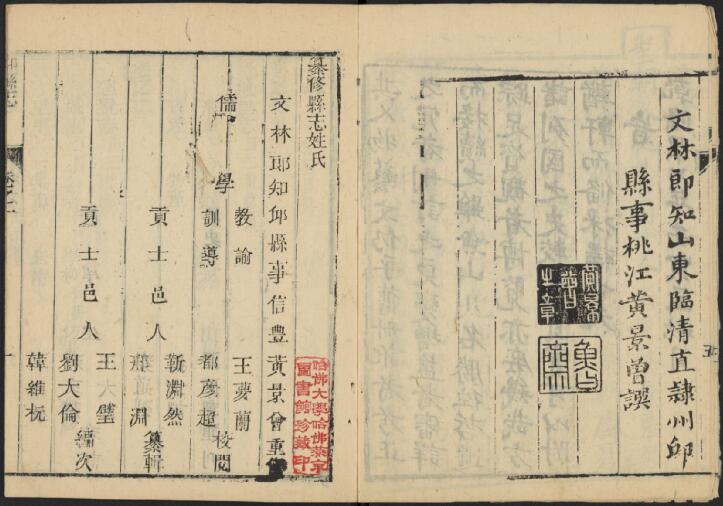 文林郎知山東臨清直隸州邱
縣事桃江黃景曾譔
黃景曾
之章
纂修縣志姓氏
文林郎知邱縣事信豐黃景曾重
儒學
教諭 王夢蘭
訓導 都彥超 校閱
貢士邑人 靳淵然
淵 纂輯
貢士邑人 王大璧
劉大倫 編次
韓維杬
哈佛大學哈佛燕京
圖書館珍藏印